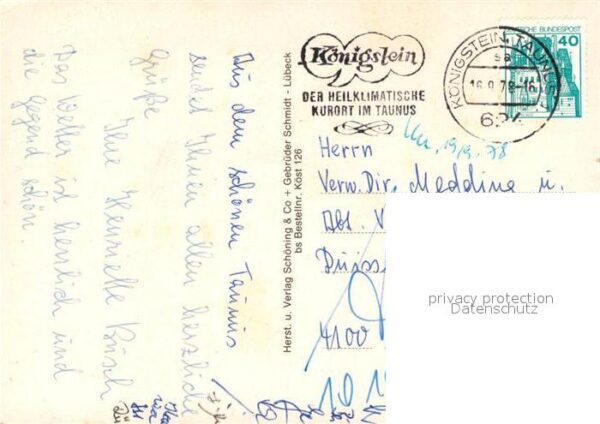 Aus dem schönen Taunus
sendet Ihnen allen herzliche
Grüße
Ihre Henriette Busch
Das Wetter ist herrlich und
die Gegend schön
Herst. u. Verlag Schöning & Co + Gebrüder Schmidt - Lübeck
bs Bestellnr. Köst 126
Königstein
DER HEILKLIMATISCHE
KURORT IM TAUNUS
KÖNIGSTEIN, TAUNUS
sa
16.9.78-16
624
DEUTSCHE BUNDESPOST
40
19/9. 78
Herrn
Verw. Dir. Meddina u.
Abt. V
4100
privacy protection
Datenschutz